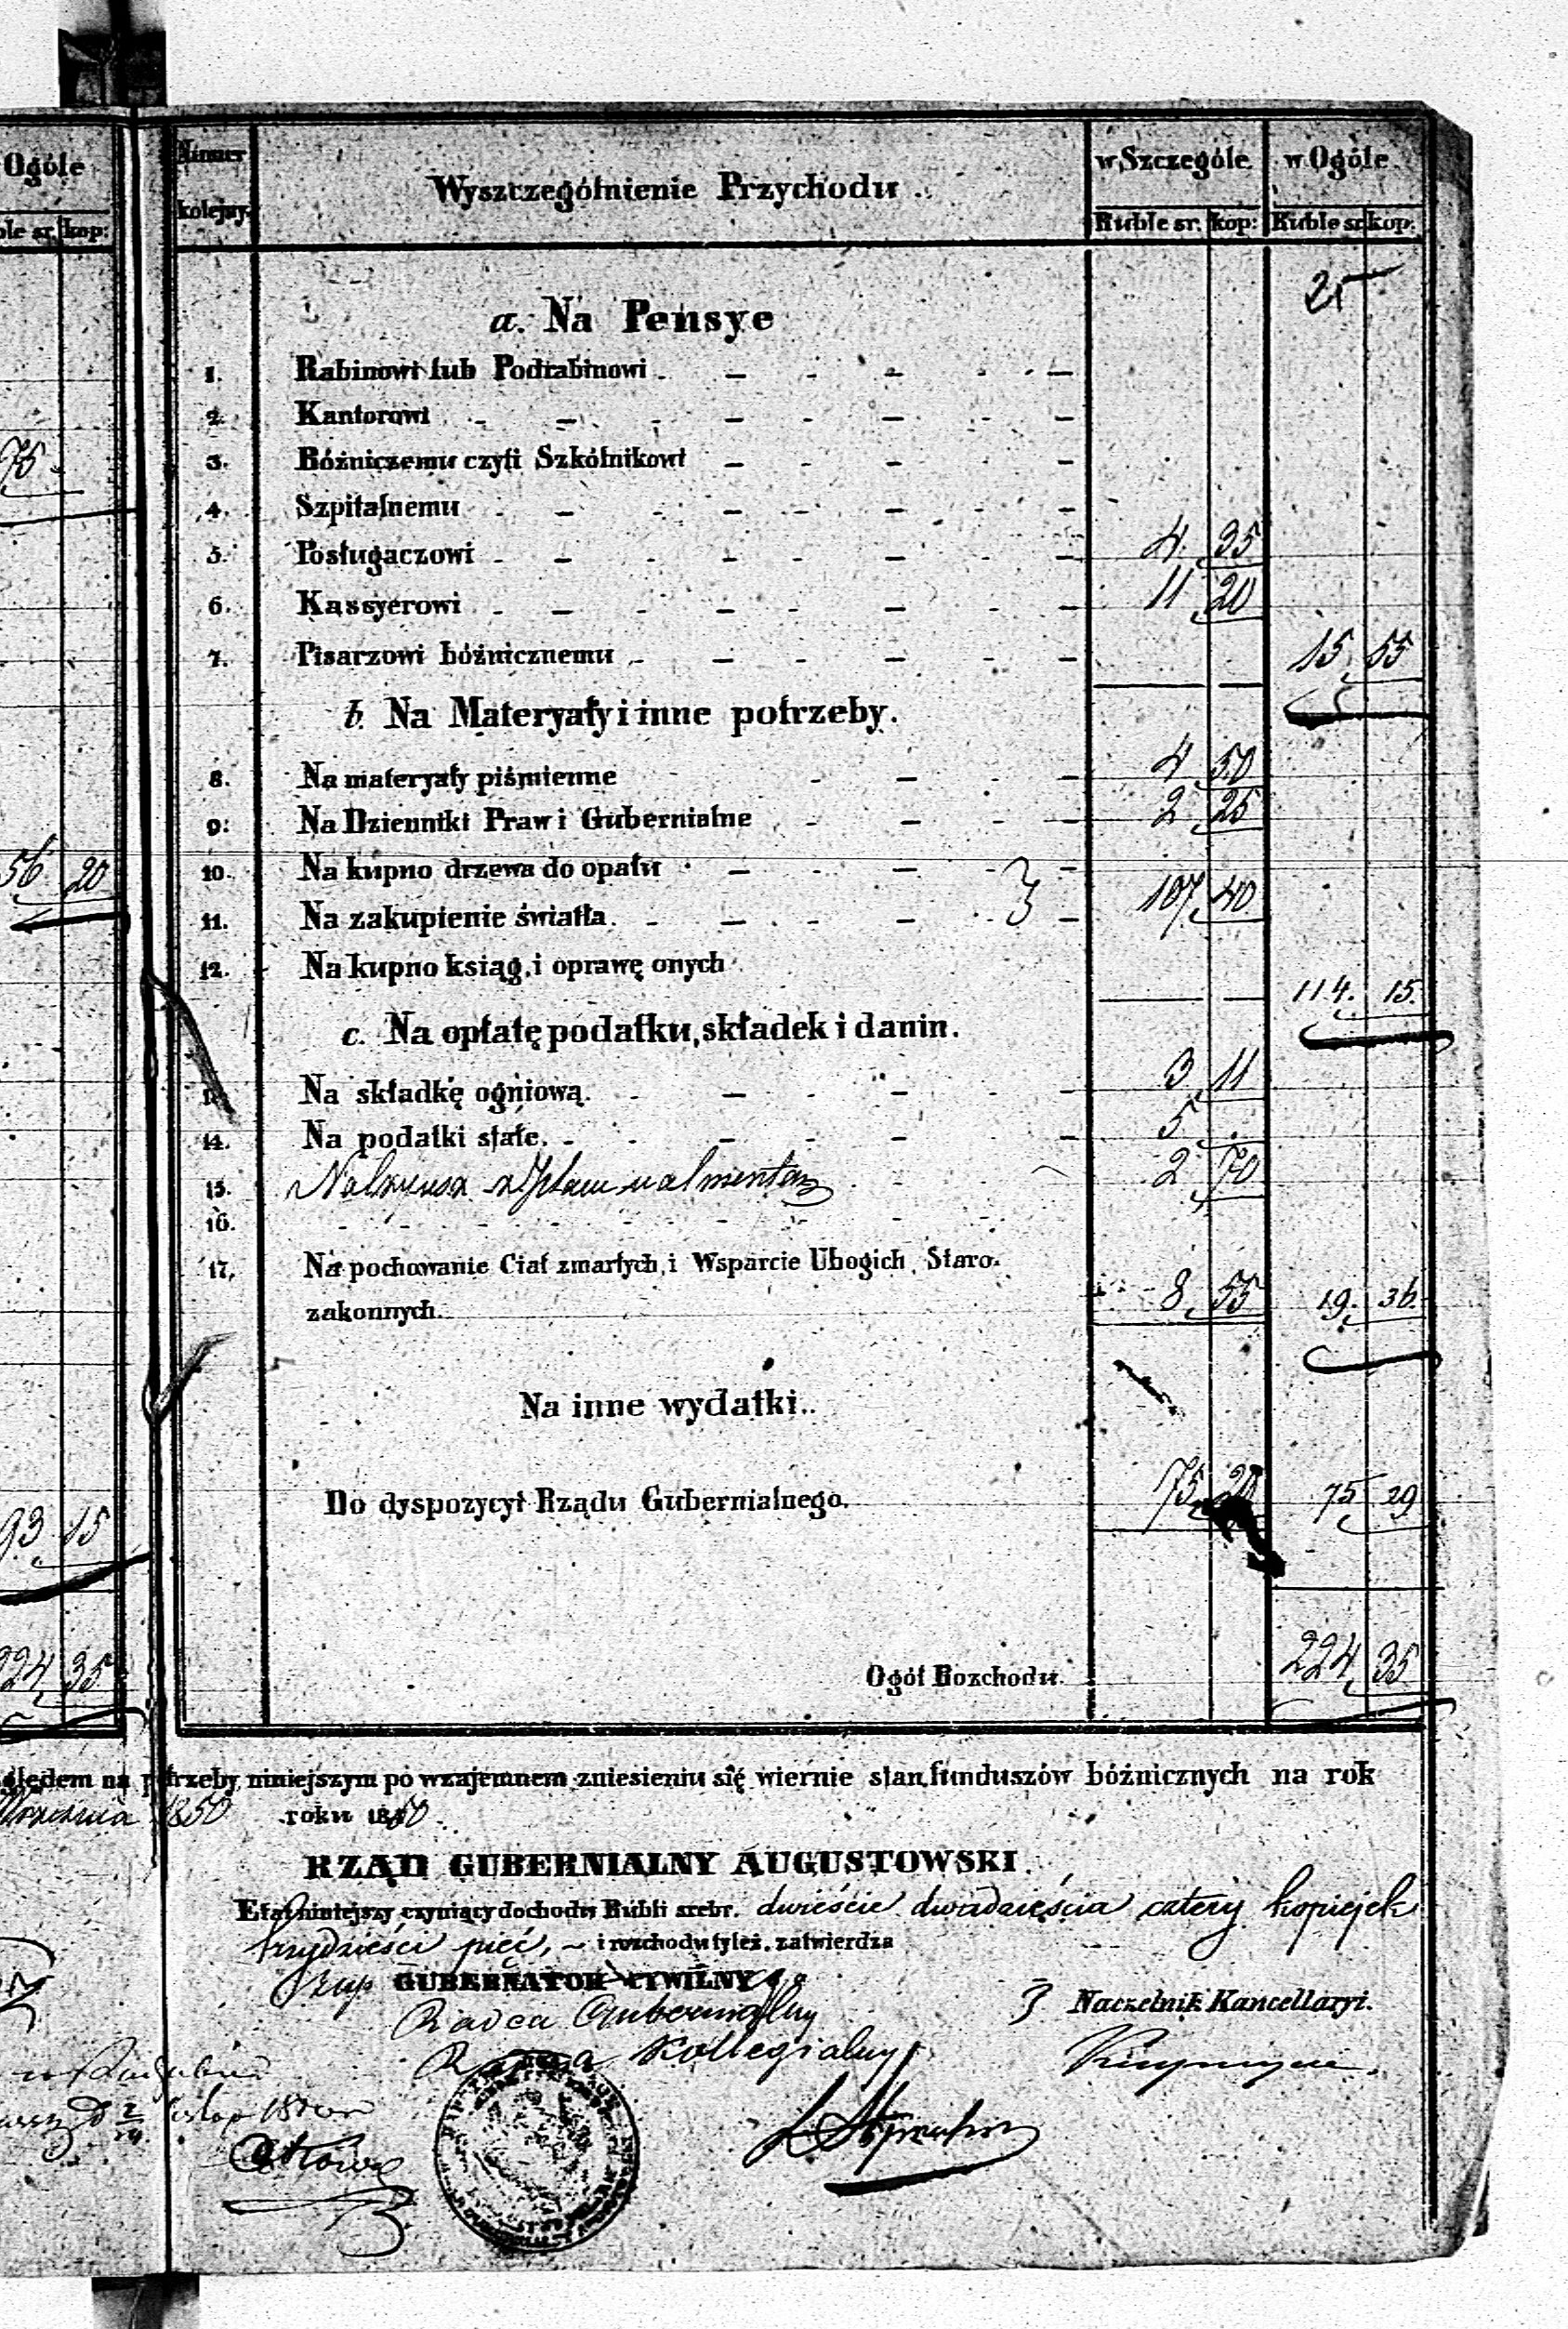 Ogóle
ble sr. kop:
75
56 20
93 15
224 35
Numer kolejny. Wyszczegółnienie Przychodu w Szczególe w Ogóle
Ruble sr. kop: Ruble sr. kop:
25
a. Na Pensye
1. Rabinowi lub Podrabinowi
2. Kantorowi
3. Bóźniczemu czyli Szkólnikowi
4. Szpitalnemu
5. Posługaczowi 4. 35
6. Kassyerowi 11 20
7. Pisarzowi bóźnicznemu 15 55
b. Na Materyały i inne potrzeby.
8. Na materyały piśmienne 4 50
9. Na Dzienniki Praw i Gubernialne 2 25
10. Na kupno drzewa do opału
11. Na zakupienie światła 107 40
12. Na kupno ksiąg, i oprawę onych
114. 15.
c. Na opłatę podatku, składek i danin.
Na składkę ogniową. 3 11
14. Na podatki stałe. 5 .
15. 2 70
16.
17. Na pochowanie Ciał zmarłych, i Wsparcie Ubogich, Staro-
zakonnych. 8 55 19. 36.
Na inne wydatki..
Do dyspozycyi Rządu Gubernialnego. 75 29 75 29
Ogół Rozchodu. 224 35
ględem na potrzeby niniejszym po wzajemnem zniesieniu się wiernie stan funduszów bóźnicznych na rok
1850 roku 1850.
RZĄD GUBERNIALNY AUGUSTOWSKI.
Etat niniejszy czyniący dochodu Rubli srebr. dwieście dwadzieścia cztery kopiejek
trzydzieści pięć, i rozchodu tyleż. zatwierdza
GUBERNATOR CYWILNY
Radca Gubernialny Naczelnik Kancellaryi.
Radca Kollegialny